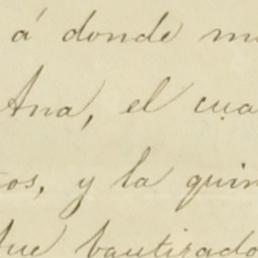 á donde m
Ana, el cua
os, y la quin
fue bautizado